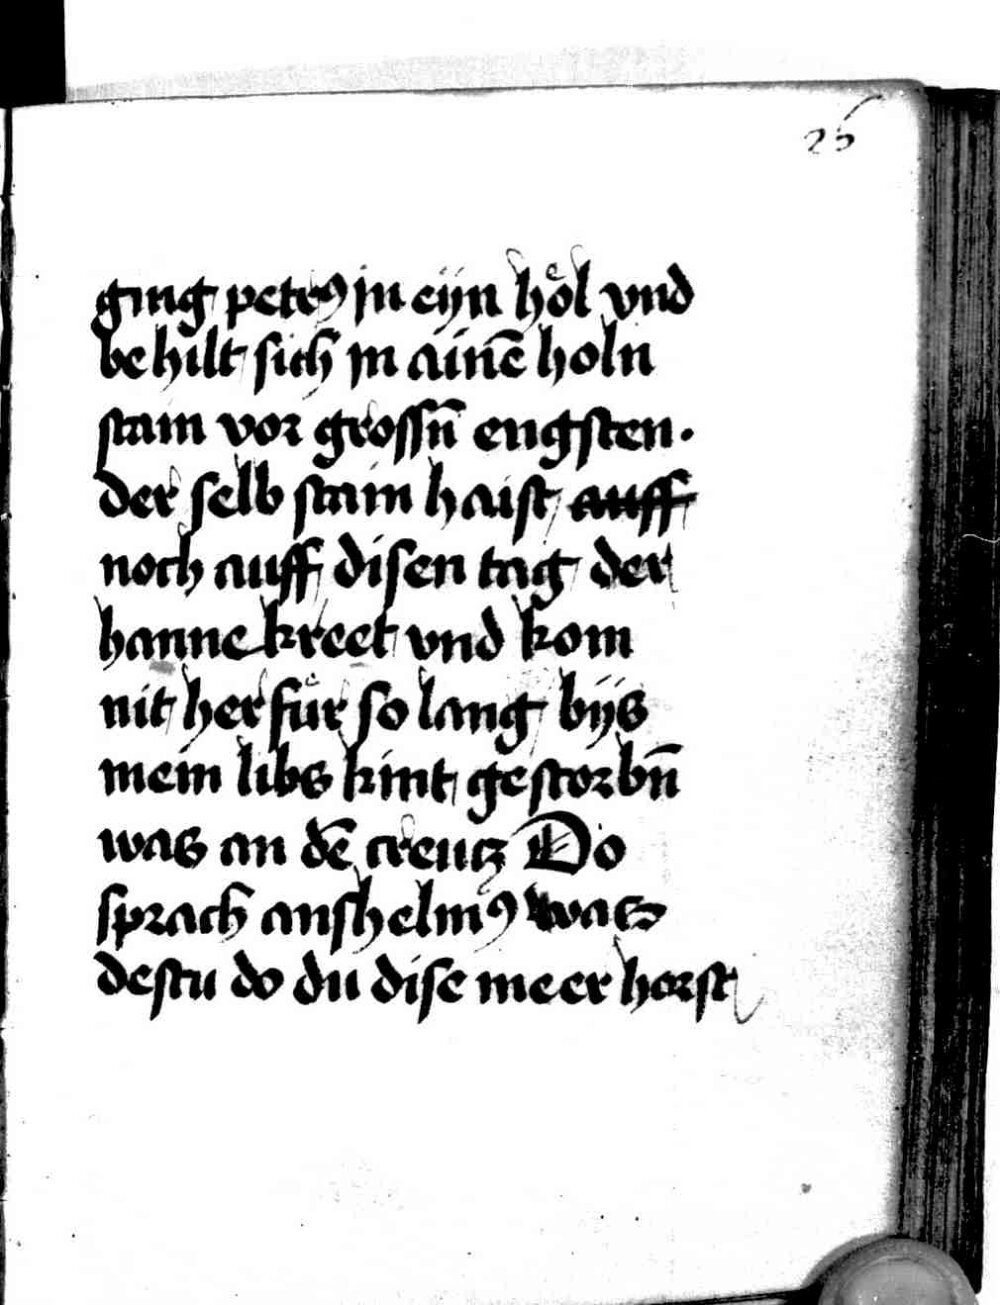 25
ging petrꝰ jn eÿn hoͤl vnd
behilt sich jn ainē holn
stain vor grossn̄ engsten.
der selb stain haist auff
noch auff disen tag der
hanne kreet vnd kom
nit her fuͤr so lang bÿs
mein libs kint gestorbn̄
was an dē creutz Do
sprach anshelmꝰ watz
destu do du dise meer horst